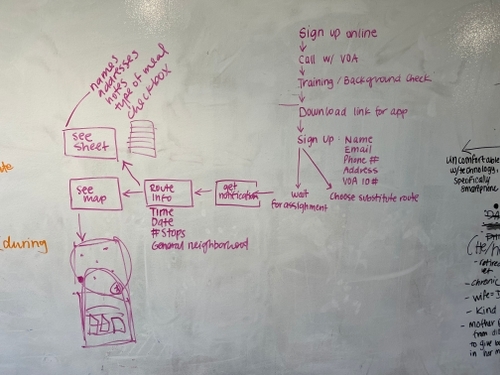 Sign up online
Call w/ VOA
Training / Background check
Download link for app
Sign up
Name
Email
Phone #
Address
VOA ID#
wait for assignment
choose substitute route
get notification
Route info
Time
Date
# Stops
General neighborhood
see map
see sheet
names
addresses
notes
type of meal
checkbox
during
uncomfortable
w/technology,
specifically
smartphone
- chronic
- wife =
- Kind
- Mother
from
to give
in her